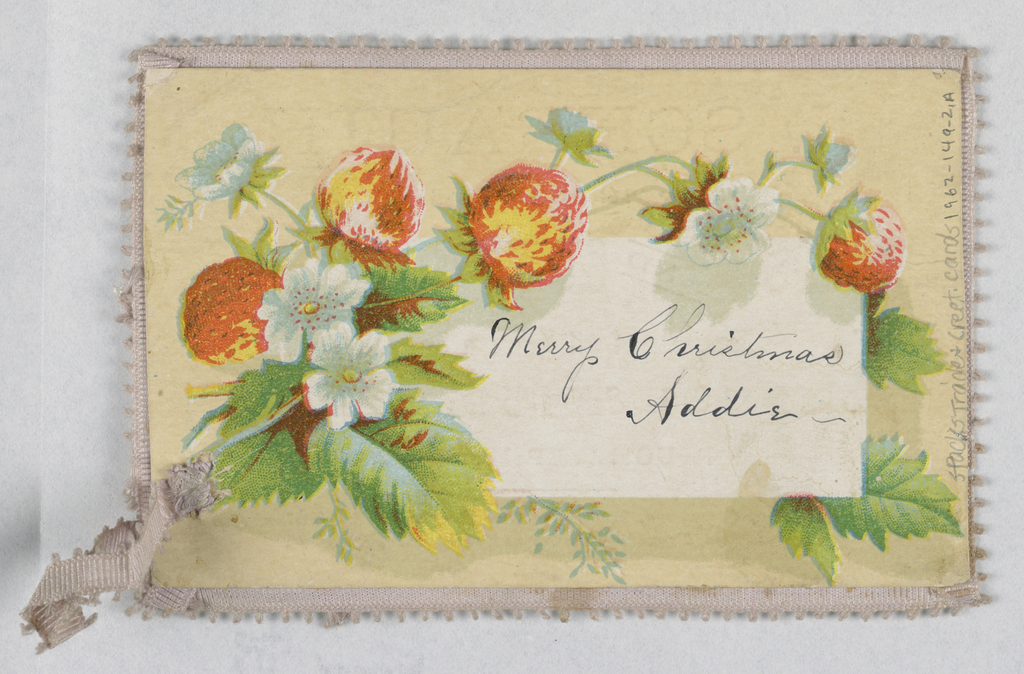 Merry Christmas
Addie
Stacks trainor Greet. cards 1962-149-21A